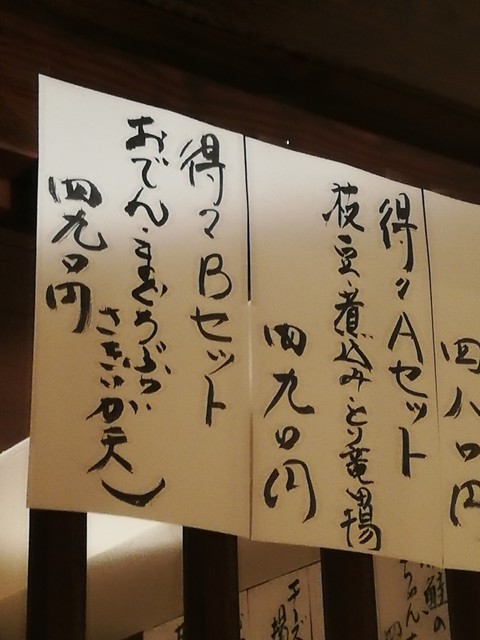 四八〇円
得々Aセット
枝豆・煮込み・とり竜田揚
四九〇円
得々Bセット
おでん・まぐろぶつ・
さきいか天
四九〇円
鮭の
ちゃん
チーズ
揚